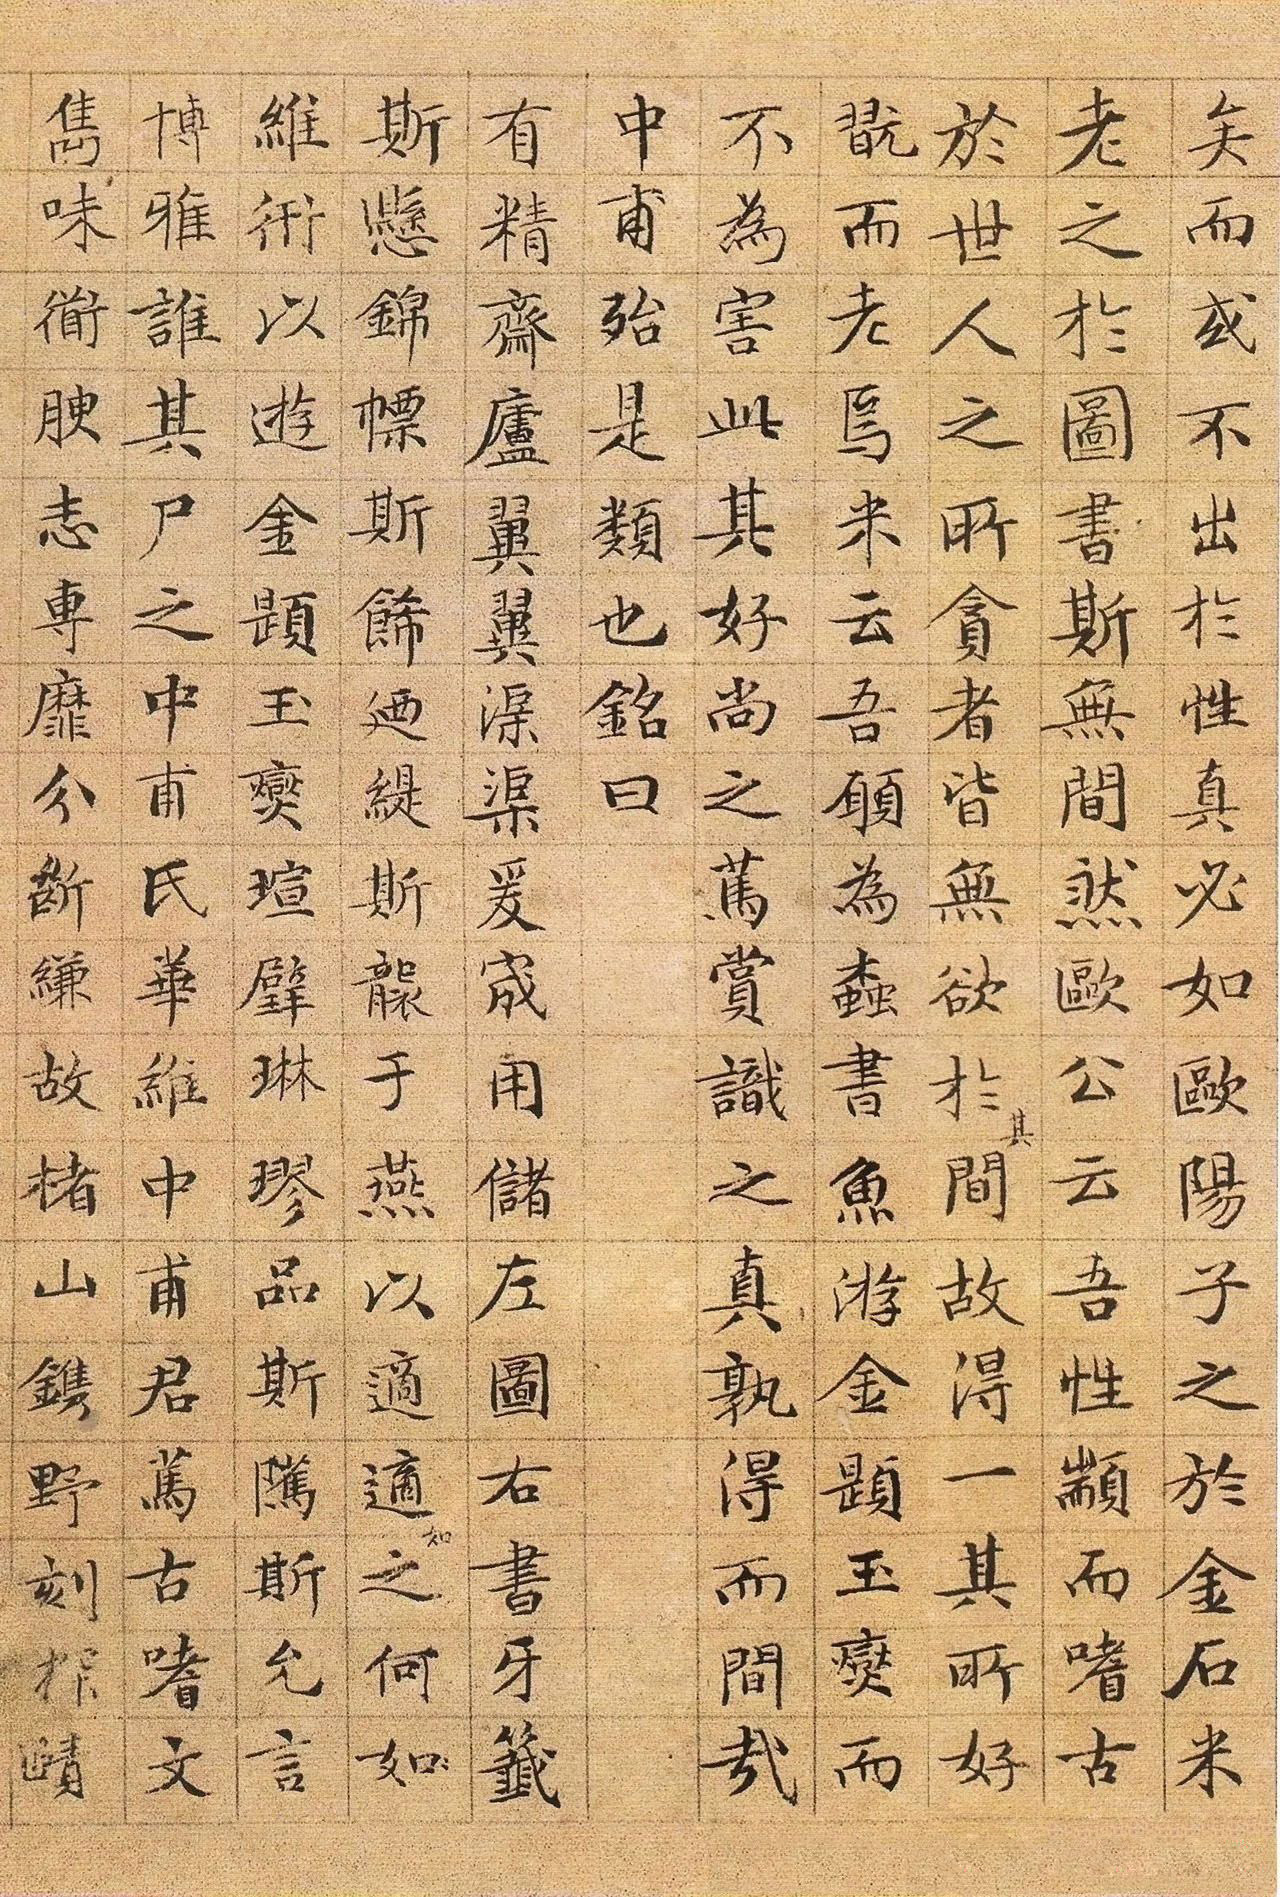 矣而或不出於性真必如歐陽子之於金石米
老之於圖書斯無間然歐公云吾性顓而嗜古
於世人之所貪者皆無欲於其間故得一其所好
翫而老焉米云吾願為蠹書魚游金題玉燮而
不為害此其好尚之篤賞識之真孰得而間哉
中甫殆是類也銘曰
有精齋廬翼翼渠渠爰宬用儲左圖右書牙籤
斯懸錦幖斯飾迺緹斯襲于燕以適適如之何如
維衎以遊金題玉燮瑄璧琳璆品斯隲斯允言
博雅誰其尸之中甫氏華維中甫君篤古嗜文
雋味衜腴志專靡分斷縑故楮山鐫野刻探賾